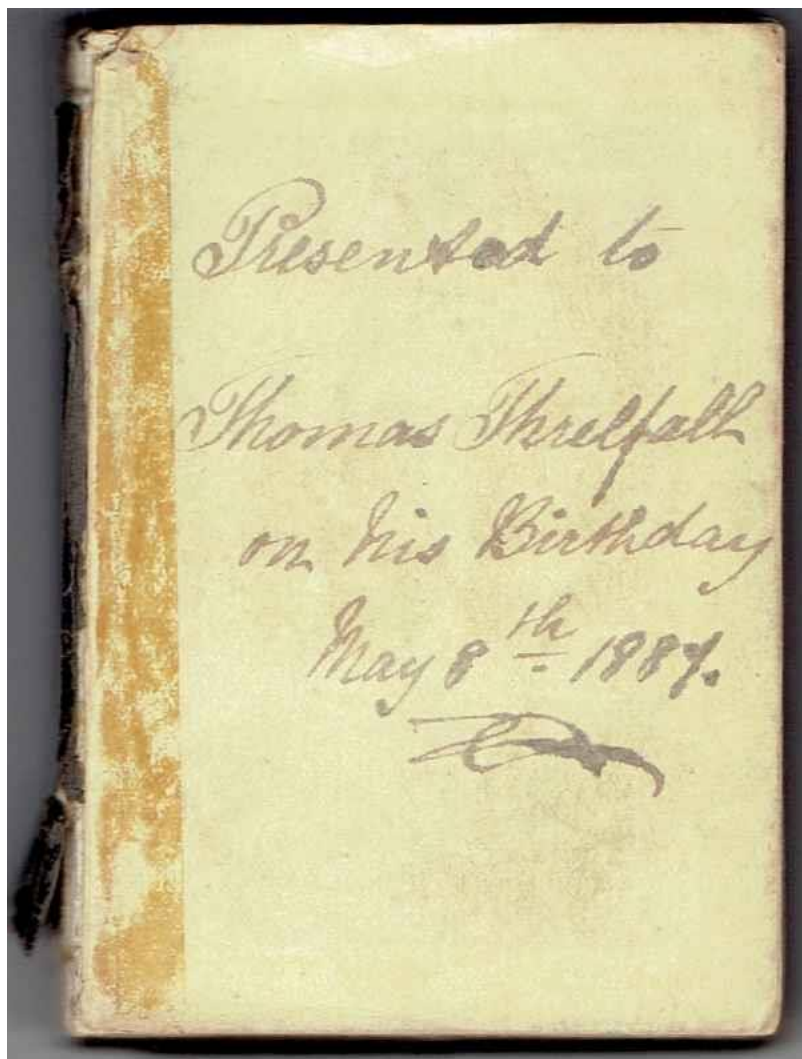 Presented to
Thomas Threlfall
on his Birthday
May 8th 1887.